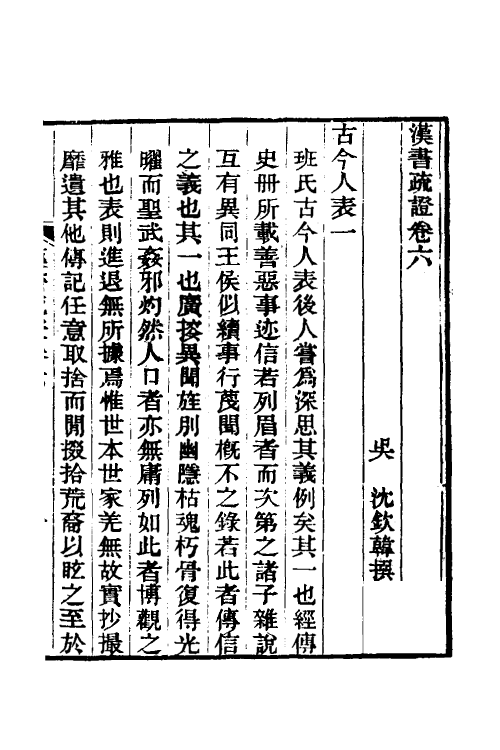 漢書疏證卷六
吳　沈欽韓撰
古今人表一
班氏古今人表後人嘗爲深思其義例矣其一也經傳
史册所載善惡事迹信若列眉者而次第之諸子雜說
互有異同王侯似續事行蔑聞槪不之錄若此者傳信
之義也其一也廣搜異聞旌別幽隱枯魂朽骨復得光
曜而聖武姦邪灼然人口者亦無庸列如此者博觀之
雅也表則進退無所據焉惟世本世家羌無故實抄撮
靡遺其他傳記任意取捨而閒掇拾荒裔以眩之至於